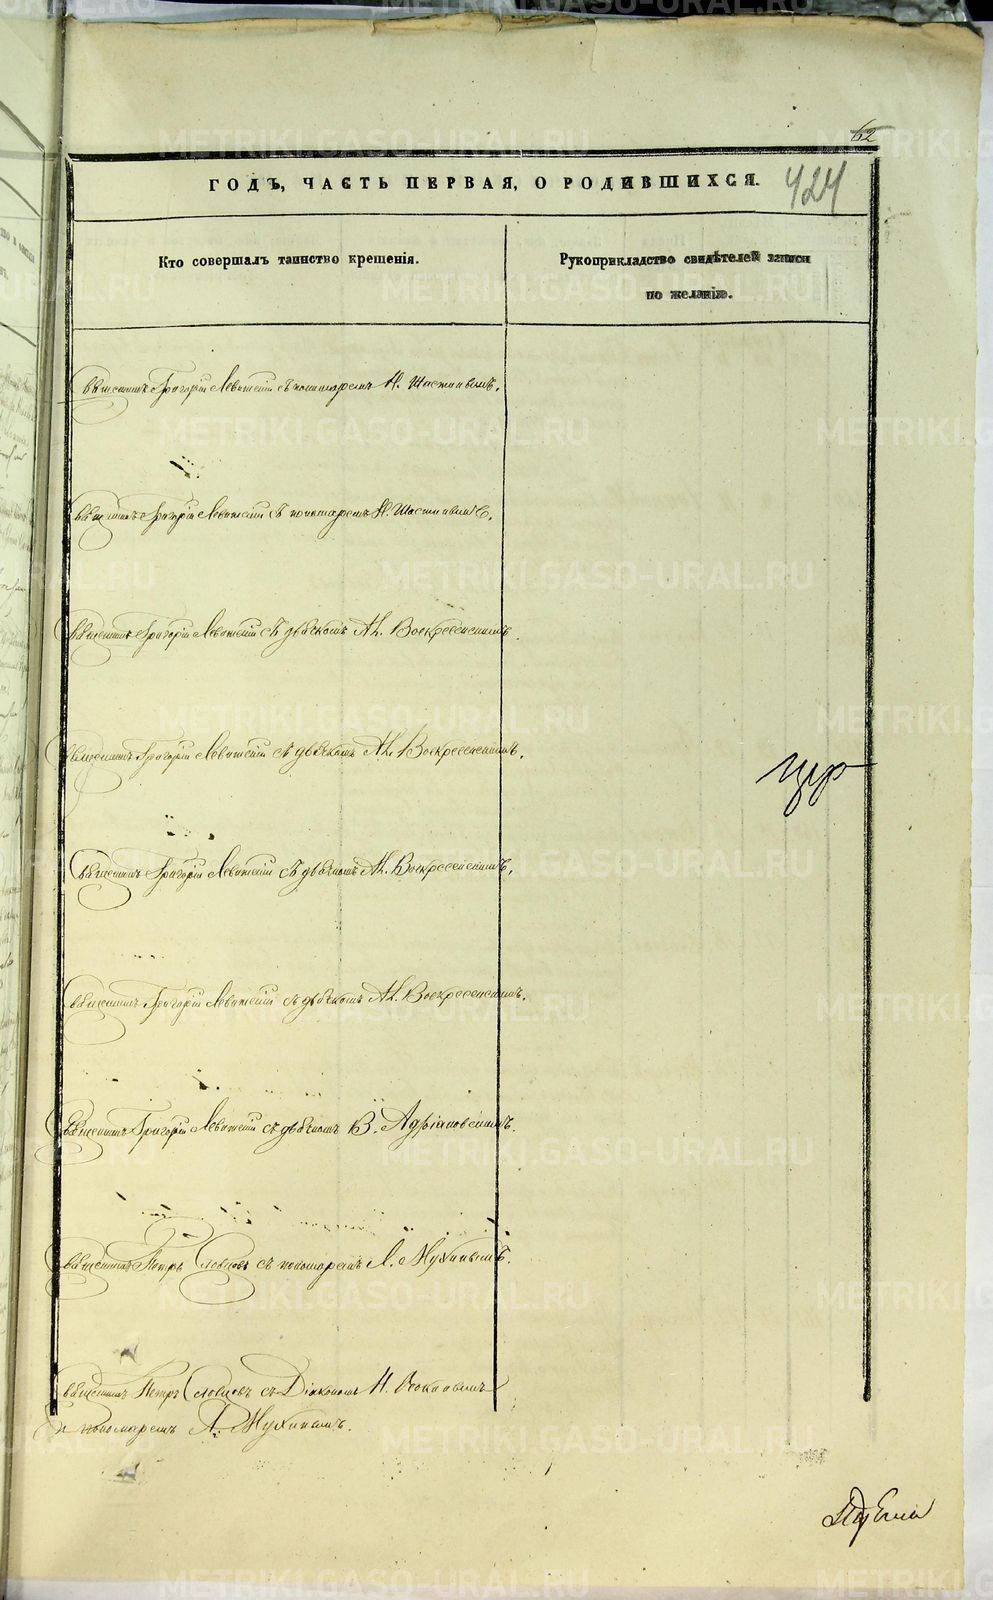 62
ГОДЪ, ЧАСТЬ ПЕРВАЯ, О РОДИВШИХСЯ.
424
Кто совершалъ таинство крещенія.
Рукоприкладство свидѣтелей записи
по желанію.
Священникъ Григорій Левитскій съ пономаремъ Н.
Священникъ Григорій Левитскій съ пономаремъ Н.
Священникъ Григорій Левитскій съ дьячкомъ Ал. Воскресенскимъ.
Священникъ Григорій Левитскій съ дьячкомъ Ал. Воскресенскимъ.
Священникъ Григорій Левитскій съ дьячкомъ Ал. Воскресенскимъ.
Священникъ Григорій Левитскій съ дьячкомъ Ал. Воскресенскимъ.
Священникъ Григорій Левитскій съ дьячкомъ В. Адріановскимъ.
Священникъ Петръ Словцовъ съ пономаремъ А. Мухинымъ.
Священникъ Петръ Словцовъ съ Діакономъ Н.
и пономаремъ А. Мухинымъ.
METRIKI.GASO-URAL.RU